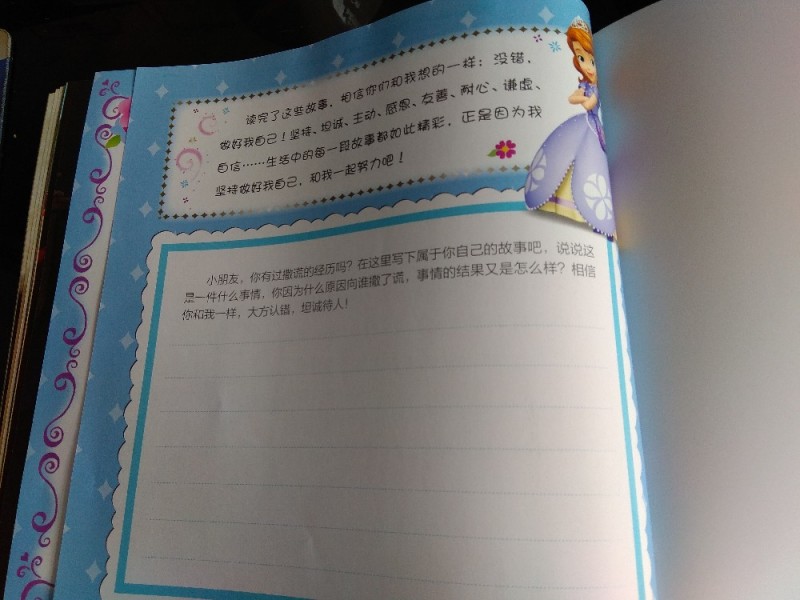 读完了这些故事，相信你们和我想的一样：没错，
做好我自己！坚持、坦诚、主动、感恩、友善、耐心、谦虚、
自信……生活中的每一段故事都如此精彩，正是因为我
坚持做好我自己，和我一起努力吧！
小朋友，你有过撒谎的经历吗？在这里写下属于你自己的故事吧，说说这
是一件什么事情，你因为什么原因向谁撒了谎，事情的结果又是怎么样？相信
你和我一样，大方认错，坦诚待人！